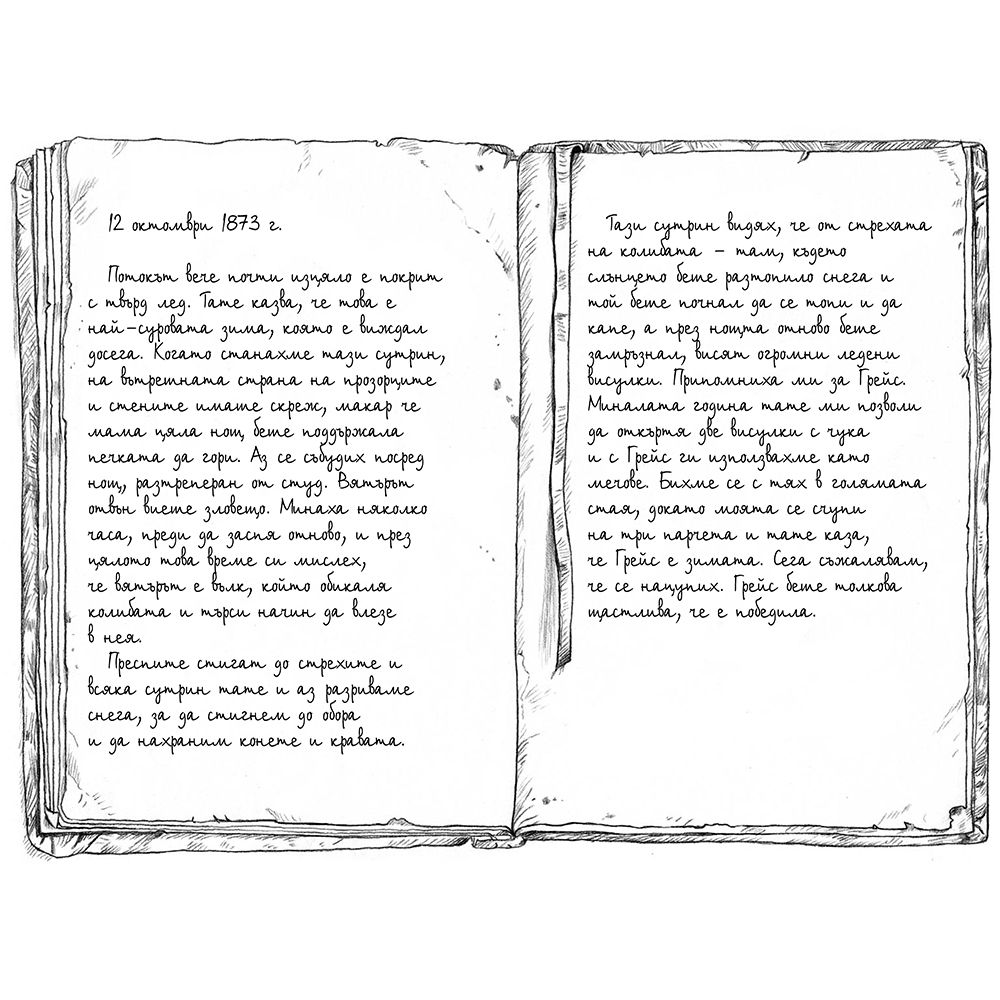 12 октомври 1873 г.
Потокът вече почти изцяло е покрит
с твърд лед. Тате казва, че това е
най-суровата зима, която е виждал
досега. Когато станахме тази сутрин,
на вътрешната страна на прозорците
и стените имаше скреж, макар че
мама цяла нощ беше поддържала
печката да гори. Аз се събудих посред
нощ, разтреперан от студ. Вятърът
отвън виеше зловещо. Минаха няколко
часа, преди да заспя отново, и през
цялото това време си мислех,
че вятърът е вълк, който обикаля
колибата и търси начин да влезе
в нея.
Преспите стигат до стрехите и
всяка сутрин тате и аз разриваме
снега, за да стигнем до обора
и да нахраним конете и кравата.
Тази сутрин видях, че от стрехата
на колибата – там, където
слънцето беше разтопило снега и
той беше почнал да се топи и да
капе, а през нощта отново беше
замръзнал, висят огромни ледени
висулки. Припомниха ми за Грейс.
Миналата година тате ми позволи
да откъртя две висулки с чука
и с Грейс ги използвахме като
мечове. Бихме се с тях в голямата
стая, докато моята се счупи
на три парчета и тате каза,
че Грейс е зимата. Сега съжалявам,
че се нацупих. Грейс беше толкова
щастлива, че е победила.